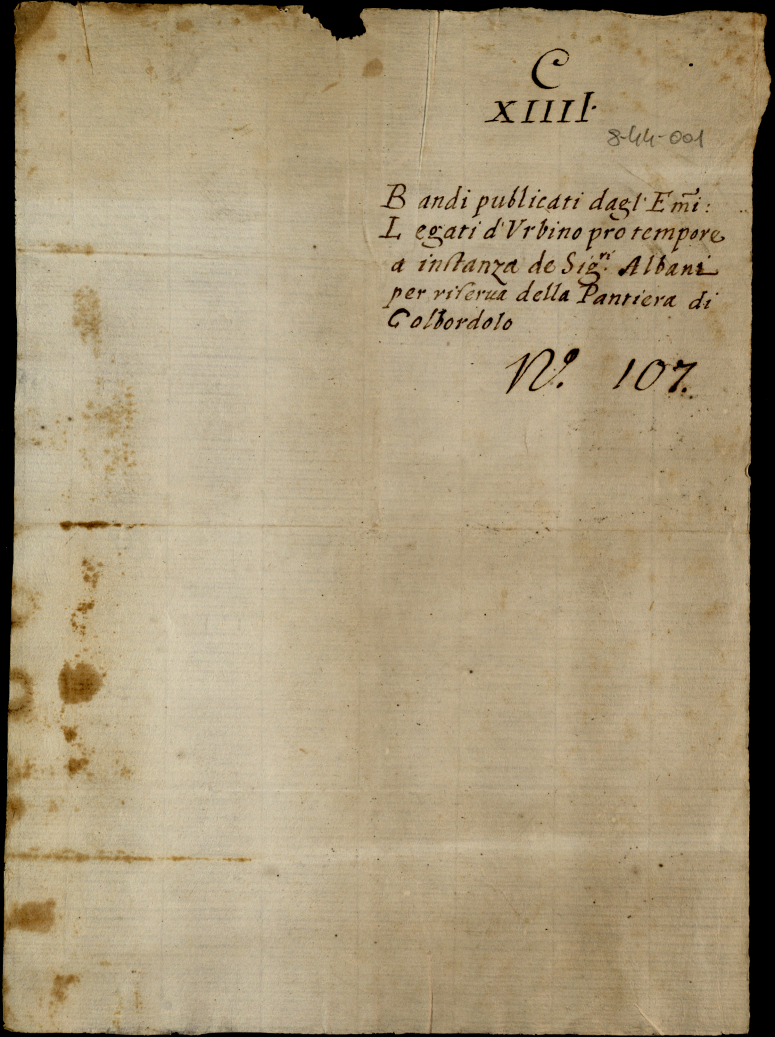 C
XIIII.
8-44-001
Bandi publicati dagl' Emi̅:
Legati d'Vrbino pro tempore
a instanza de Sig.ri Albani
per riserua della Pantiera di
Colbordolo
N.o 107.